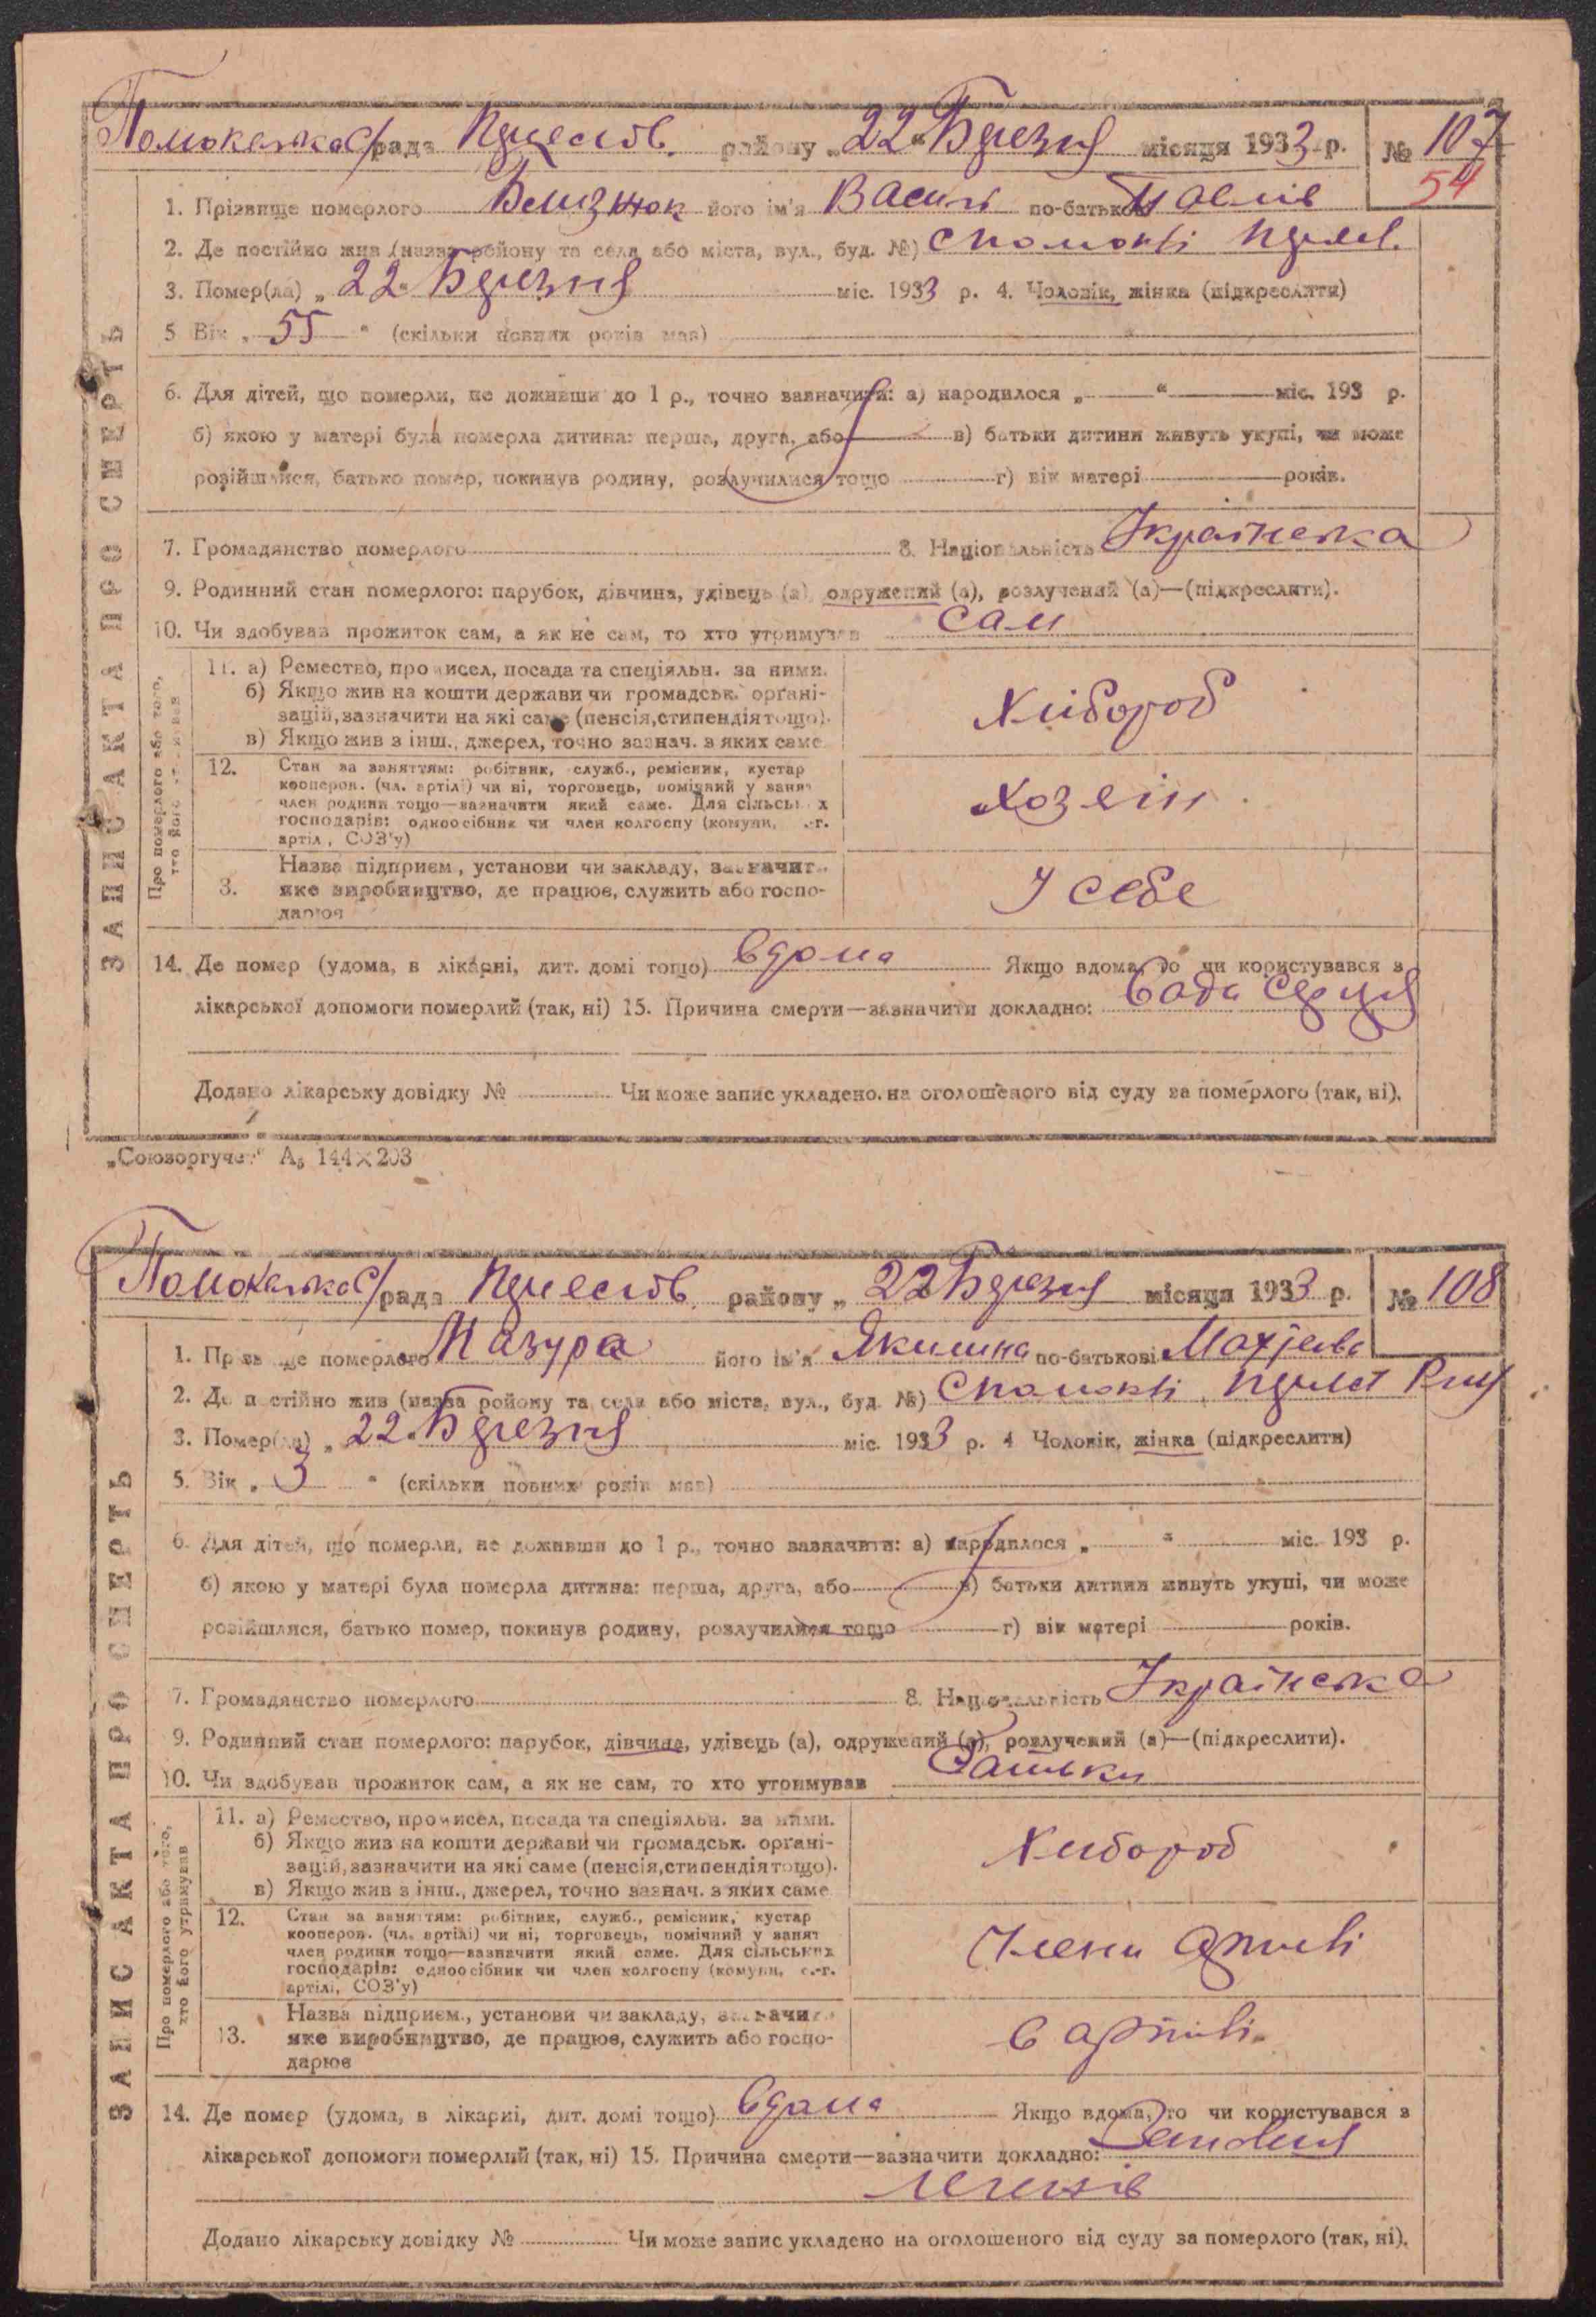 Помокельска С/рада Переслов. району „22“ Березня місяця 1933 р. № 107
54
1. Прізвище померлого Близнюк його ім'я Василь по-батькові Павлів
2. Де постійно жив (назва району та села або міста, вул., буд. №)
3. Помер(ла) „22“ Березня міс. 1933 р. 4. Чоловік, жінка (підкреслити)
5 Вік „55“ (скільки повних років мав)
6. Для дітей, що померли, не доживши до 1 р., точно зазначити: а) народилося „ “ міс. 193 р.
б) якою у матері була померла дитина: перша, друга, або в) батьки дитини живуть укупі, чи може
розійшлися, батько помер, покинув родину, розлучилися тощо г) вік матері років.
7. Громадянство померлого 8. Національність Українська
9. Родинний стан померлого: парубок, дівчина, удівець (а), одружений (а), розлучений (а)—(підкреслити).
10. Чи здобував прожиток сам, а як не сам, то хто утримував сам
ЗАПИС АКТА ПРО СМЕРТЬ
Про померлого або того, хто його утримував
11. а) Ремество, промисел, посада та спеціяльн. за ними.
б) Якщо жив на кошти держави чи громадськ. органі-
зацій, зазначити на які саме (пенсія, стипендія тощо).
в) Якщо жив з інш., джерел, точно зазнач. з яких саме.
Хлібороб
12. Стан за заняттям: робітник, служб., ремісник, кустар
кооперов. (чл. артілі) чи ні, торговець, помічний у занят
член родини тощо—зазначити який саме. Для сільських
господарів: одноосібник чи член колгоспу (комуни, с.-г.
артіл, СОЗ'у)
Хозеін
3. Назва підприєм., установи чи закладу, зазначит
яке виробництво, де працює, служить або госпо-
дарює
У себе
14. Де помер (удома, в лікарні, дит. домі тощо) вдома Якщо вдома, то чи користувався з
лікарської допомоги померлий (так, ні) 15. Причина смерти—зазначити докладно: Вада серця
Додано лікарську довідку № Чи може запис укладено на оголошеного від суду за померлого (так, ні).
„Союзоргучет“ А₅ 144×203
Помокельска С/рада Переслов. району „22 Березня місяця 1933 р. № 108
1. Прізвище померлого Мазура його ім'я Якилина по-батькові
2. Де постійно жив (назва району та села або міста, вул., буд. №)
3. Помер(ла) „22“ Березня міс. 1933 р. 4 Чоловік, жінка (підкреслити)
5. Вік „3“ (скільки повних років мав)
6. Для дітей, що померли, не доживши до 1 р., точно зазначити: а) народилося „ “ міс. 193 р.
б) якою у матері була померла дитина: перша, друга, або в) батьки дитини живуть укупі, чи може
розійшлися, батько помер, покинув родину, розлучилися тощо г) вік матері років.
7. Громадянство померлого 8. Національність Українська
9. Родинний стан померлого: парубок, дівчина, удівець (а), одружений (а), розлучений (а)—(підкреслити).
10. Чи здобував прожиток сам, а як не сам, то хто утримував Батьки
ЗАПИС АКТА ПРО СМЕРТЬ
Про померлого або того, хто його утримував
11. а) Ремество, промисел, посада та спеціяльн. за ними.
б) Якщо жив на кошти держави чи громадськ. органі-
зацій, зазначити на які саме (пенсія, стипендія тощо).
в) Якщо жив з інш., джерел, точно зазнач. з яких саме
Хлібороб
12. Стан за заняттям: робітник, служб., ремісник, кустар
кооперов. (чл. артілі) чи ні, торговець, помічний у занят
член родини тощо—зазначити який саме. Для сільських
господарів: одноосібник чи член колгоспу (комуни, с.-г.
артілі, СОЗ'у)
Члени артілі
13. Назва підприєм., установи чи закладу, зазначи
яке виробництво, де працює, служить або госпо-
дарює
в артілі
14. Де помер (удома, в лікарні, дит. домі тощо) вдома Якщо вдома, то чи користувався з
лікарської допомоги померлий (так, ні) 15. Причина смерти—зазначити докладно:
легенів
Додано лікарську довідку № Чи може запис укладено на оголошеного від суду за померлого (так, ні).